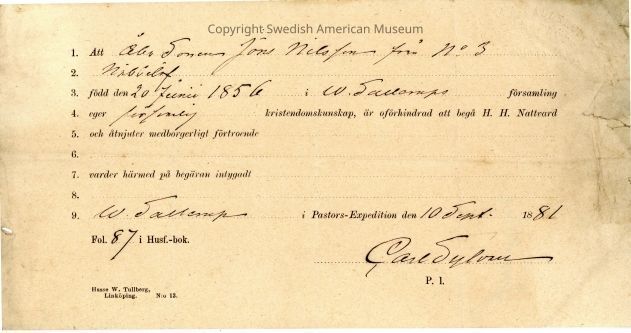 Copyright Swedish American Museum
1. Att Åbo Sonen Jöns Nilsson från No 3
2.
3. född den 20 Junii 1856 i W. Sallerups församling
4. eger kristendomskunskap, är oförhindrad att begå H. H. Nattvard
5. och åtnjuter medborgerligt förtroende
6.
7. varder härmed på begäran intygadt
8.
9. W. Sallerup i Pastors-Expedition den 10 Sept. 1881
Fol. 87 i Husf.-bok.
Carl
P. l.
Hasse W. Tullberg,
Linköping. N:o 13.